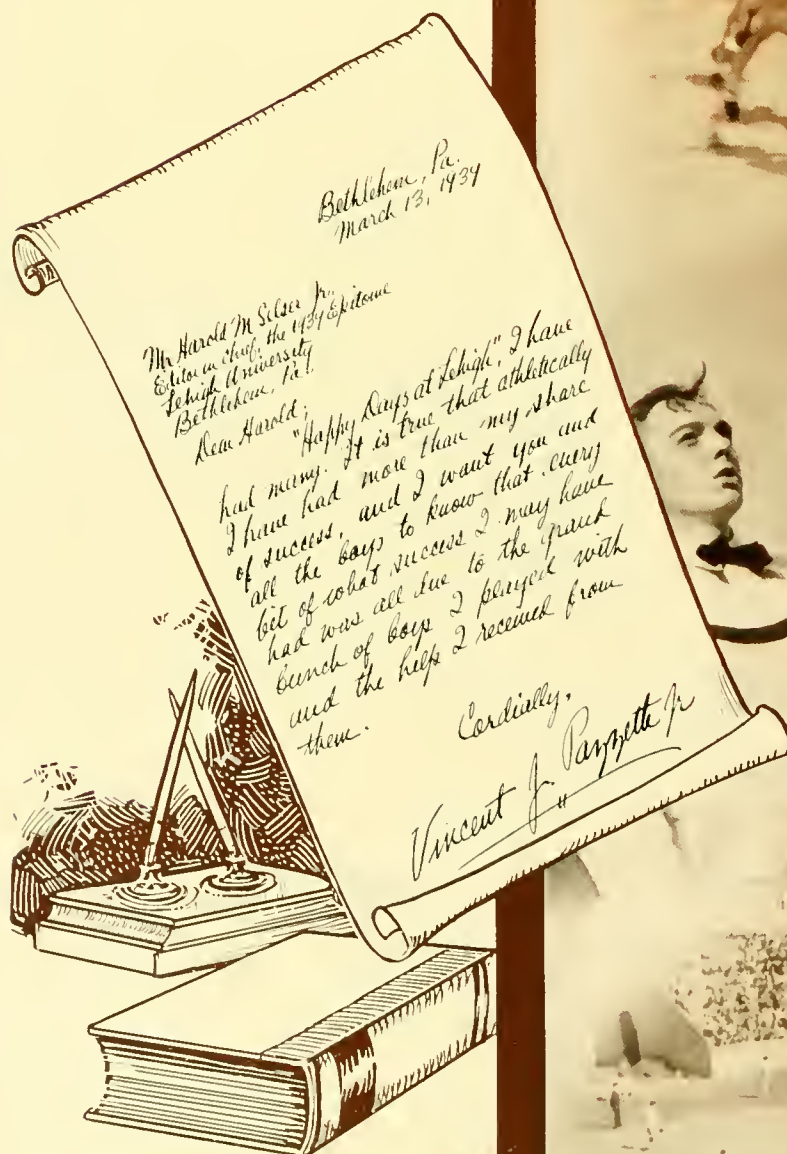 Bethlehem, Pa.
March 13, 1934
Mr Harold M Selser Jr.
Editor in chief, the 1934 Epitome
Lehigh University
Bethlehem, Pa.
Dear Harold;
"Happy Days at Lehigh", I have
had many. It is true that athletically
I have had more than my share
of success, and I want you and
all the boys to know that every
bit of what success I may have
had was all due to the grand
bunch of boys I played with
and the help I received from
them.
Cordially,
Vincent J. Pazzetti Jr